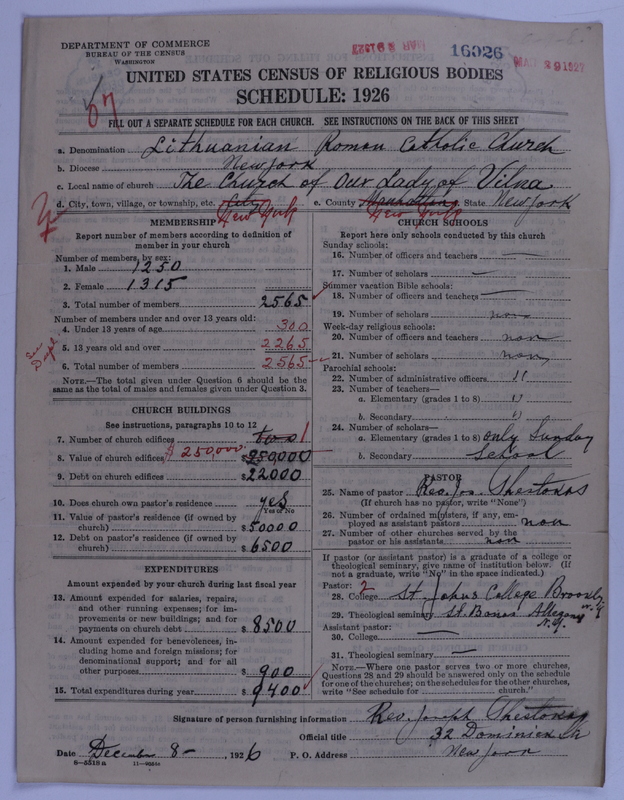 DEPARTMENT OF COMMERCE
BUREAU OF THE CENSUS
WASHINGTON
16026
UNITED STATES CENSUS OF RELIGIOUS BODIES
SCHEDULE: 1926
FILL OUT A SEPARATE SCHEDULE FOR EACH CHURCH. SEE INSTRUCTIONS ON THE BACK OF THIS SHEET
a. Denomination Lithuanian Roman Catholic Church
b. Diocese New York
c. Local name of church The Church of Our Lady of Vilna
d. City, town, village, or township, etc. City New York e. County New York State New York
MEMBERSHIP
Report number of members according to definition of member in your church
Number of members, by sex:
1. Male 1250
2. Female 1315
3. Total number of members 2565
Number of members under and over 13 years old:
4. Under 13 years of age 300
5. 13 years old and over 2265
6. Total number of members 2565
NOTE.—The total given under Question 6 should be the same as the total of males and females given under Question 3.
CHURCH BUILDINGS
See instructions, paragraphs 10 to 12
7. Number of church edifices two 1
8. Value of church edifices $250,000 $250,000
9. Debt on church edifices $22000
10. Does church own pastor's residence yes
Yes or No
11. Value of pastor's residence (if owned by church) $50000
12. Debt on pastor's residence (if owned by church) $6500
EXPENDITURES
Amount expended by your church during last fiscal year
13. Amount expended for salaries, repairs, and other running expenses; for improvements or new buildings; and for payments on church debt $8500
14. Amount expended for benevolences, including home and foreign missions; for denominational support; and for all other purposes $900
15. Total expenditures during year $9400
CHURCH SCHOOLS
Report here only schools conducted by this church
Sunday schools:
16. Number of officers and teachers —
17. Number of scholars —
Summer vacation Bible schools:
18. Number of officers and teachers —
19. Number of scholars non
Week-day religious schools:
20. Number of officers and teachers non
21. Number of scholars non
Parochial schools:
22. Number of administrative officers "
23. Number of teachers—
a. Elementary (grades 1 to 8) "
b. Secondary "
24. Number of scholars—
a. Elementary (grades 1 to 8) only Sunday
b. Secondary School
PASTOR
25. Name of pastor Rev. Jos. Shestokas
(If church has no pastor, write "None")
26. Number of ordained ministers, if any, employed as assistant pastors non
27. Number of other churches served by the pastor or his assistants non
If pastor (or assistant pastor) is a graduate of a college or theological seminary, give name of institution below. (If not a graduate, write "No" in the space indicated.)
Pastor: 2
28. College St. Johns College Brooklyn
29. Theological seminary St. Bonas Allegany N.Y.
Assistant pastor:
30. College —
31. Theological seminary —
NOTE.—Where one pastor serves two or more churches, Questions 28 and 29 should be answered only on the schedule for one of the churches; on the schedules for the other churches, write "See schedule for church."
Signature of person furnishing information Rev. Joseph Shestokas
Official title 32 Dominick St
Date December 8- 1926 P. O. Address New York
8—5518a